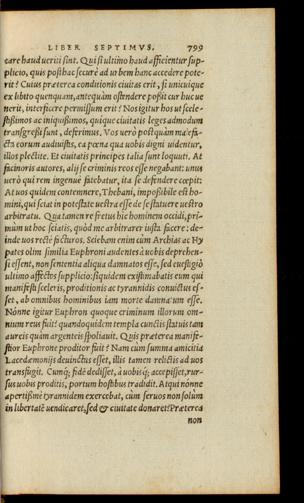 LIBER SEPTIMVS. 799
care haud ueriti sint. Qui si ultimo haud afficientur sup-
plicio, quis posthac securè ad urbem hanc accedere pote-
rit? Cuius præterea conditionis ciuitas erit, si unicuique
ex libito quenquam, antequàm ostendere possit cur huc ue
nerit, interficere permissum erit? Nos igitur hos ut scele-
stissimos ac iniquissimos, quique ciuitatis leges admodum
transgressi sunt, deferimus. Vos uerò postquàm malefa-
cta eorum audiuistis, ea pœna qua uobis digni uidentur,
illos plectite. Et ciuitatis principes talia sunt loquuti. At
facinoris autores, alij se criminis reos esse negabant: unus
uerò qui rem ingenuè fatebatur, ita se defendere cœpit:
At uos quidem contemnere, Thebani, impossibile est ho-
mini, qui sciat in potestate uestra esse de se statuere uestro
arbitratu. Qua tamen re fretus hic hominem occidi, pri-
mùm ut hoc sciatis, quòd me arbitrarer iusta facere: de-
inde uos rectè facturos. Sciebam enim cùm Archias ac Hy
pates olim similia Euphroni audentes à uobis deprehen-
si essent, non sententia aliqua damnatos esse, sed euestigiò
ultimo affectos supplicio: siquidem existimabatis eum qui
manifesti sceleris, proditionis ac tyrannidis conuictus es-
set, ab omnibus hominibus iam morte damnatum esse.
Nónne igitur Euphron quoque criminum illorum om-
nium reus fuit? quandoquidem templa cunctis statuis tam
aureis quàm argenteis spoliauit. Quis præterea manife-
stior Euphrone proditor fuit? Nam cùm summa amicitia
Lacedæmonijs deuinctus esset, illis tamen relictis ad uos
transfugit. Cumq; fidē dedisset, à uobisq; accepisset, rur-
sus uobis proditis, portum hostibus tradidit. Atqui nónne
apertissimè tyrannidem exercebat, cùm seruos non solùm
in libertatē uendicaret, sed & ciuitate donaret? Præterea
non